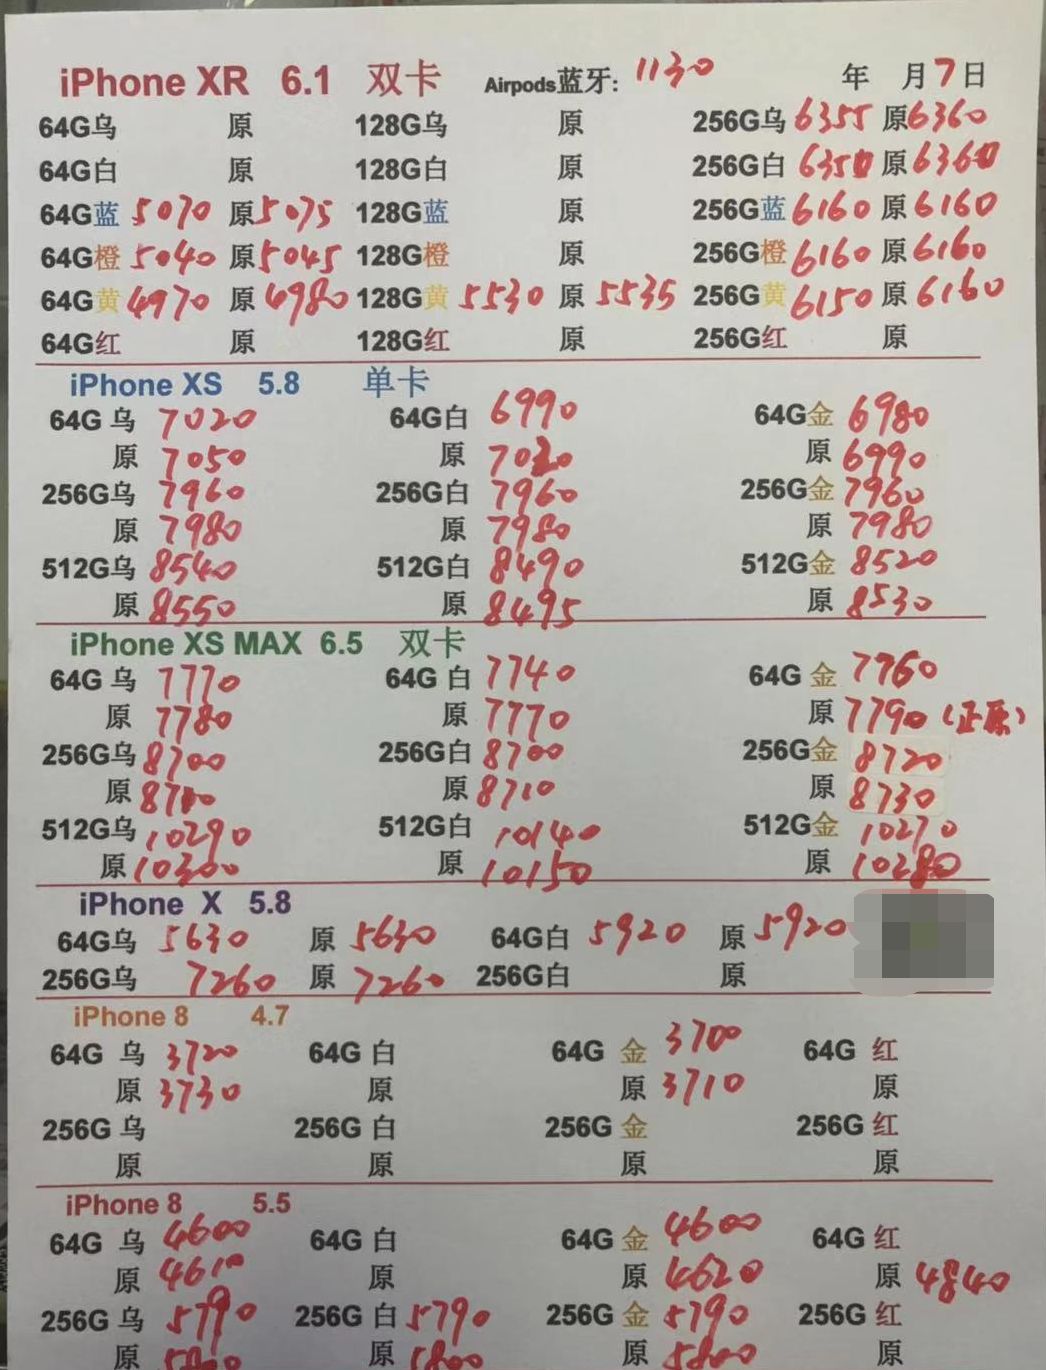 iPhone XR 6.1 双卡 Airpods蓝牙: 1130 年 月7日
64G乌 原 128G乌 原 256G乌 6355 原6360
64G白 原 128G白 原 256G白 6350 原6360
64G蓝 5070 原5075 128G蓝 原 256G蓝 6160 原6160
64G橙 5040 原5045 128G橙 原 256G橙 6160 原6160
64G黄 4970 原 4980 128G黄 5530 原 5535 256G黄 6150 原 6160
64G红 原 128G红 原 256G红 原
iPhone XS 5.8 单卡
64G 乌 7020 64G白 6990 64G金 6980
原 7050 原 7020 原 6990
256G乌 7960 256G白 7960 256G金 7960
原 7980 原 7980 原 7980
512G乌 8540 512G白 8490 512G金 8520
原 8550 原 8495 原 8530
iPhone XS MAX 6.5 双卡
64G 乌 7770 64G 白 7740 64G 金 7760
原 7780 原 7770 原 7790 (正原)
256G乌 8700 256G白 8700 256G金 8720
原 8710 原 8710 原 8730
512G乌 10290 512G白 10140 512G金 10270
原 10300 原 10150 原 10280
iPhone X 5.8
64G乌 5630 原 5630 64G白 5920 原 5920
256G乌 7260 原 7260 256G白 原
iPhone 8 4.7
64G 乌 3720 64G 白 64G 金 3700 64G 红
原 3730 原 原 3710 原
256G 乌 256G 白 256G 金 256G 红
原 原 原 原
iPhone 8 5.5
64G 乌 4600 64G 白 64G 金 4600 64G 红
原 4610 原 原 4620 原 4840
256G 乌 5790 256G 白 5790 256G 金 5790 256G 红
原 原 5800 原 5800 原